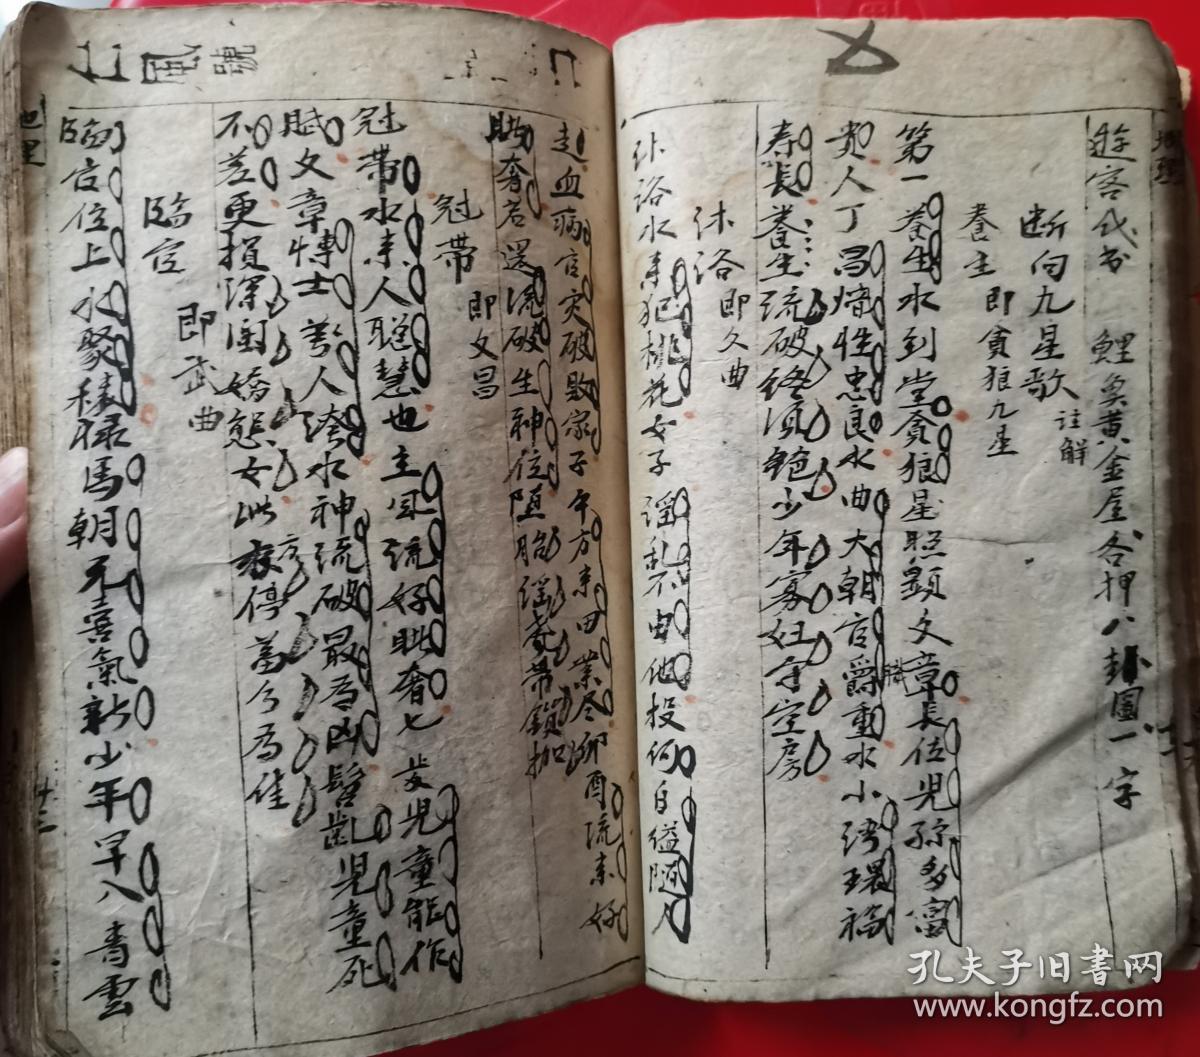 遊客代書 鯉魚黃金屋各押八卦圖一字
断向九星歌 註解
養生 即貪狼九星
第一養生水到堂貪狼星照顕文章長位児孫多富
貴人丁昌熾性忠良水曲大朝官爵重水小湾環福
寿長養生流破終須絶少年寡妇守空房
沐浴即文曲
沐浴水来犯桃花女子淫乱不由他投何自缢随人
赴血病官灾破敗家子午方来田業尽卯酉流来好
賭奢若還流破生神位随胎淫声帯鎖枷
冠帯 即文昌
冠帯水来人聡慧也主風流好賭奢七歳児童能作
賦文章博士萬人誇水神流破最為凶髫齔児童死
不差更損深閨嬌態女此方停蓄乃為佳
臨官 即武曲
臨官位上水聚積禄馬朝元喜氣新少年早入青雲
地理
十三
風號
地理
孔夫子旧書网
www.kongfz.com